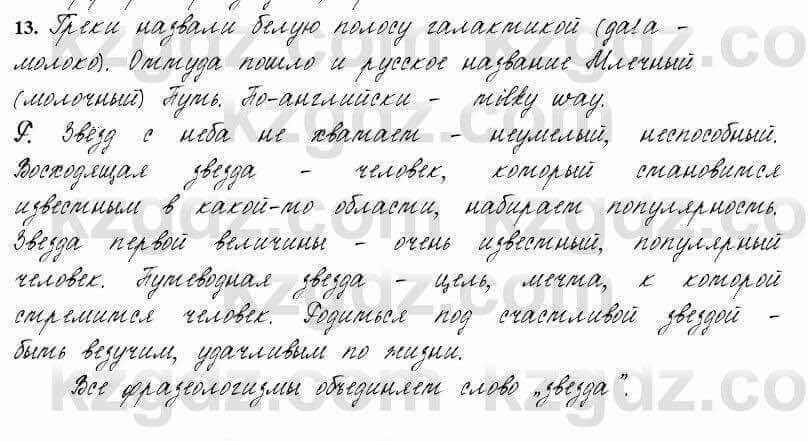 13. Греки назвали белую полосу галактикой (gala -
молоко). Оттуда пошло и русское название Млечный
(молочный) Путь. По-английски - milky way.
Р. Звёзд с неба не хватает - неумелый, неспособный.
Восходящая звезда - человек, который становится
известным в какой-то области, набирает популярность.
Звезда первой величины - очень известный, популярный
человек. Путеводная звезда - цель, мечта, к которой
стремится человек. Родиться под счастливой звездой -
быть везучим, удачливым по жизни.
Все фразеологизмы объединяет слово „звезда".
kzgdz.com